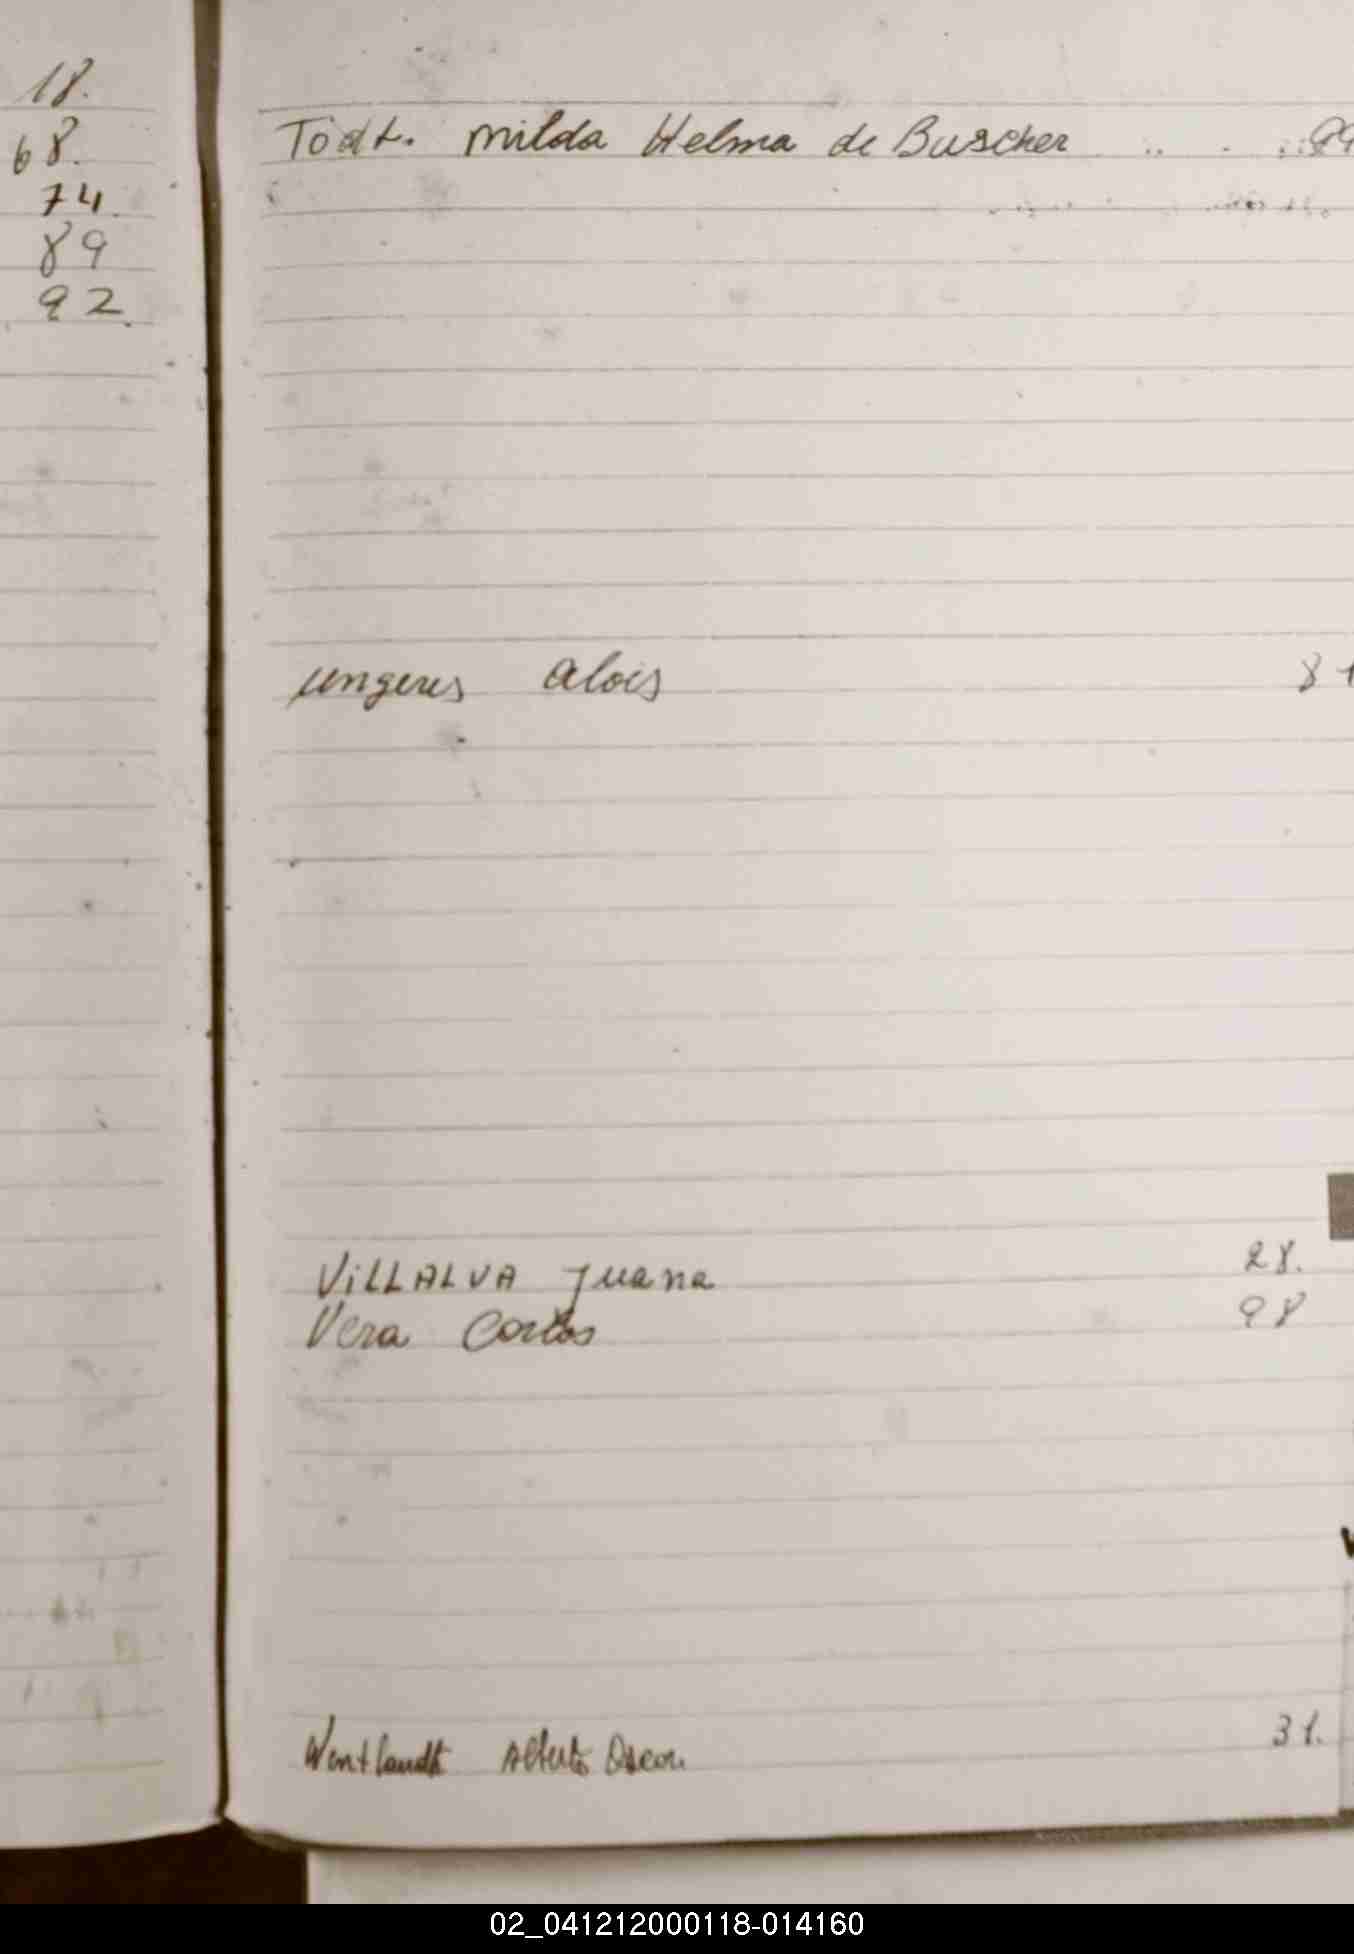 18.
68.
74.
89
92.
Tödt. Milda Helma de Buscher 99
ungeres alois 81
ViLLALVA Juana 28.
Vera Carlos 98
Wentlandt Alberto Oscar. 31.
02_041212000118-014160